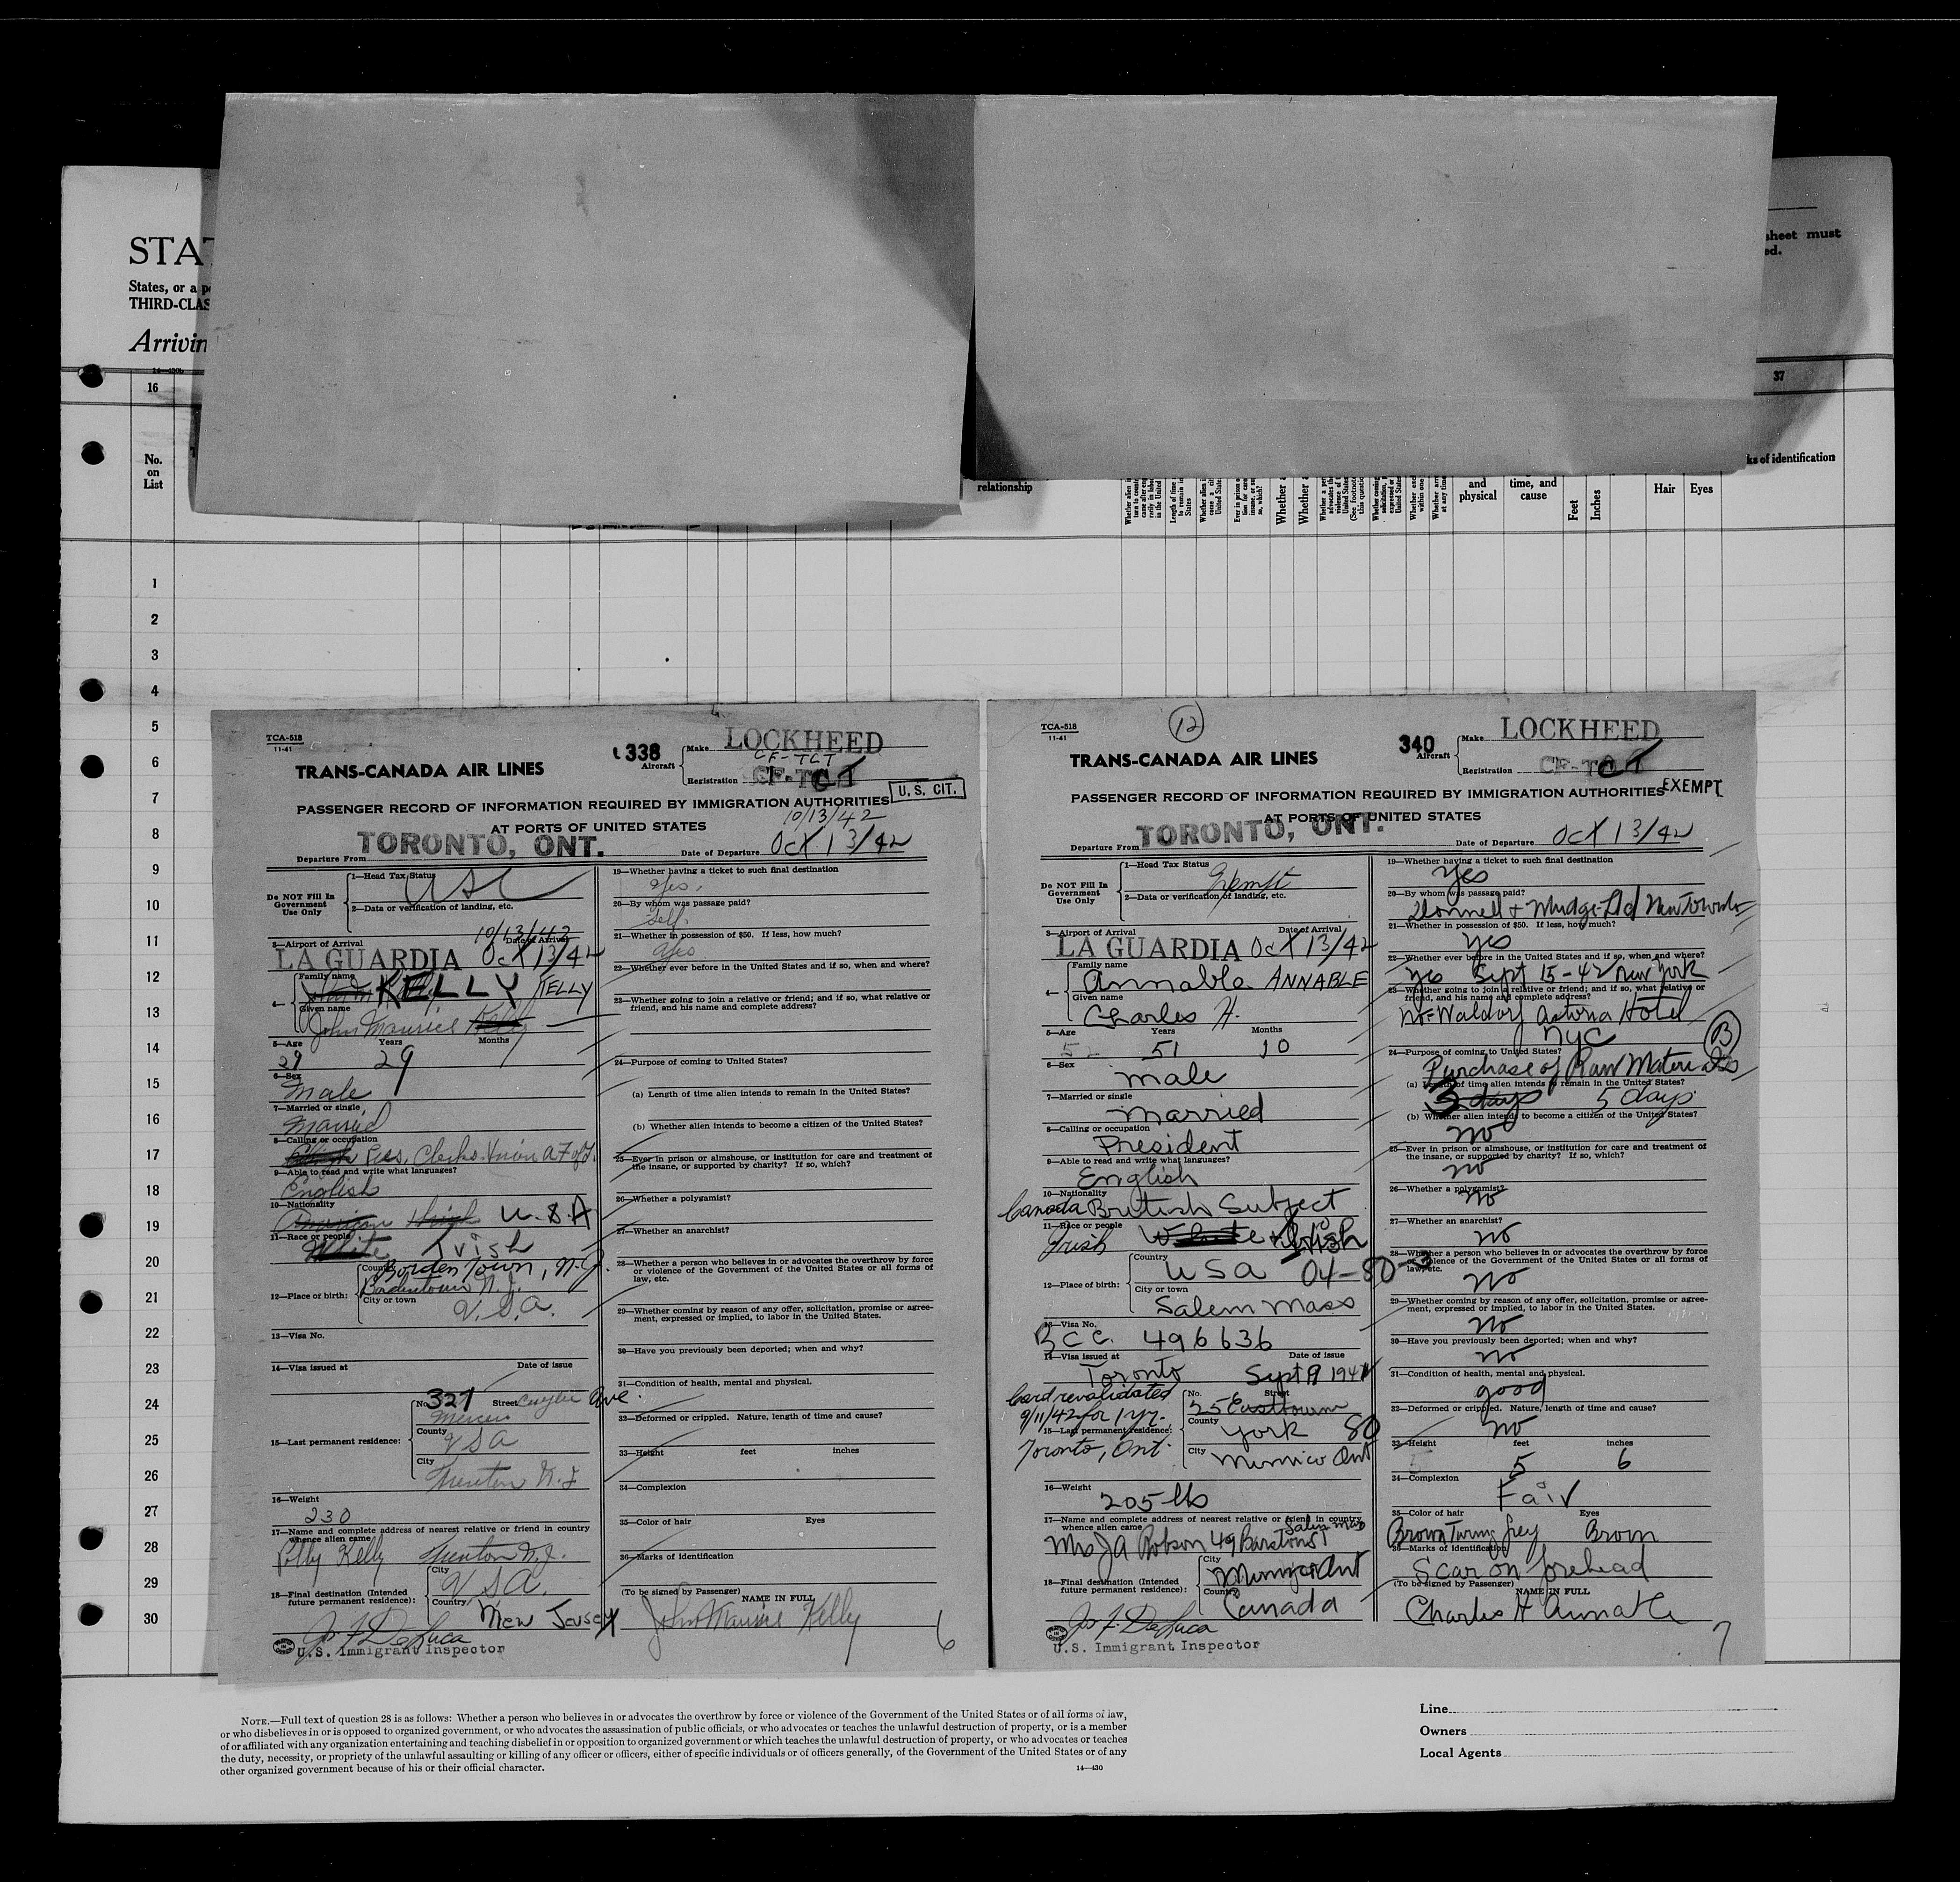 STAT
States, or a p
THIRD-CLAS
Arrivin
sheet must
ed.
16
37
No.
on
List
relationship
and
physical
time, and
cause
Feet
Inches
Hair
Eyes
ks of identification
1
2
3
4
5
6
7
8
9
10
11
12
13
14
15
16
17
18
19
20
21
22
23
24
25
26
27
28
29
30
TCA-518
11-41
338
Aircraft
Make LOCKHEED
CF-TCT
Registration CF-TCT
TRANS-CANADA AIR LINES
U. S. CIT.
PASSENGER RECORD OF INFORMATION REQUIRED BY IMMIGRATION AUTHORITIES
AT PORTS OF UNITED STATES
10/13/42
Departure From TORONTO, ONT.
Date of Departure Oct 13/42
Do NOT Fill In
Government
Use Only
1—Head Tax Status USC
2—Data or verification of landing, etc.
10/13/42
3—Airport of Arrival
Date of Arrival
LA GUARDIA Oct 13/42
4— Family name
KELLY KELLY
Given name
John Maurice Kelly
5—Age Years Months
29 29
6—Sex
Male
7—Married or single
Married
8—Calling or occupation
Pres, Clerks Union A F of L.
9—Able to read and write what languages?
English
10—Nationality
American U.S.A
11—Race or people
White Irish
12—Place of birth:
Country
Borden Town, N.J.
Bordentown N.J.
City or town
U.S.A.
13—Visa No.
14—Visa issued at Date of issue
15—Last permanent residence:
No. 327 Street Cuyler Ave.
Mercer
County
USA
City
Trenton N.J
16—Weight
230
17—Name and complete address of nearest relative or friend in country
whence alien came
Polly Kelly Trenton N.J.
18—Final destination (Intended
future permanent residence):
City
U S A.
Country New Jersey
J. F. DeLuca
U.S. Immigrant Inspector
19—Whether having a ticket to such final destination
Yes.
20—By whom was passage paid?
Self.
21—Whether in possession of $50. If less, how much?
Yes
22—Whether ever before in the United States and if so, when and where?
23—Whether going to join a relative or friend; and if so, what relative or
friend, and his name and complete address?
24—Purpose of coming to United States?
(a) Length of time alien intends to remain in the United States?
(b) Whether alien intends to become a citizen of the United States?
25—Ever in prison or almshouse, or institution for care and treatment of
the insane, or supported by charity? If so, which?
26—Whether a polygamist?
27—Whether an anarchist?
28—Whether a person who believes in or advocates the overthrow by force
or violence of the Government of the United States or all forms of
law, etc.
29—Whether coming by reason of any offer, solicitation, promise or agree-
ment, expressed or implied, to labor in the United States.
30—Have you previously been deported; when and why?
31—Condition of health, mental and physical.
32—Deformed or crippled. Nature, length of time and cause?
33—Height feet inches
34—Complexion
35—Color of hair Eyes
36—Marks of identification
(To be signed by Passenger) NAME IN FULL
John Maurice Kelly
6
TCA-518
11-41
12
340
Aircraft
Make LOCKHEED
Registration CF-TCT
TRANS-CANADA AIR LINES
EXEMPT
PASSENGER RECORD OF INFORMATION REQUIRED BY IMMIGRATION AUTHORITIES
AT PORTS OF UNITED STATES
Departure From TORONTO, ONT.
Date of Departure Oct 13/42
Do NOT Fill In
Government
Use Only
1—Head Tax Status
Exempt
2—Data or verification of landing, etc.
3—Airport of Arrival
Date of Arrival
LA GUARDIA Oct 13/42
4— Family name
Annable ANNABLE
Given name
Charles H.
5—Age Years Months
52 51 10
6—Sex
male
7—Married or single
married
8—Calling or occupation
President
9—Able to read and write what languages?
English
10—Nationality
Canada British Subject
11—Race or people
Irish White
12—Place of birth:
Country
USA 04-80-3
City or town
Salem Mass
13—Visa No.
BCC. 496636
14—Visa issued at Date of issue
Toronto Sept 9 1941
Card revalidated
9/11/42 for 1 yr.
Toronto, Ont.
15—Last permanent residence:
No. Street
25 Eastbourne
County
York 80
City
Mimico Ont
16—Weight
205 lbs
17—Name and complete address of nearest relative or friend in country
whence alien came
Salem Mass
Mrs JA Robson 49 Barstow St
18—Final destination (Intended
future permanent residence):
City
Mimico Ont
Country
Canada
J. F. DeLuca
U.S. Immigrant Inspector
19—Whether having a ticket to such final destination
Yes
20—By whom was passage paid?
Donnell & Mudge Ltd New Toronto
21—Whether in possession of $50. If less, how much?
yes
22—Whether ever before in the United States and if so, when and where?
yes Sept 15-42 New York
23—Whether going to join a relative or friend; and if so, what relative or
friend, and his name and complete address?
no-Waldorf Astoria Hotel
NYC
B
24—Purpose of coming to United States?
Purchase of Raw Materials
(a) Length of time alien intends to remain in the United States?
3 days 5 days
(b) Whether alien intends to become a citizen of the United States?
no
25—Ever in prison or almshouse, or institution for care and treatment of
the insane, or supported by charity? If so, which?
no
26—Whether a polygamist?
no
27—Whether an anarchist?
no
28—Whether a person who believes in or advocates the overthrow by force
or violence of the Government of the United States or all forms of
law, etc.
no
29—Whether coming by reason of any offer, solicitation, promise or agree-
ment, expressed or implied, to labor in the United States.
no
30—Have you previously been deported; when and why?
no
31—Condition of health, mental and physical.
good
32—Deformed or crippled. Nature, length of time and cause?
no
33—Height feet inches
5 6
34—Complexion
Fair
35—Color of hair Eyes
Brown Turning Grey Brown
36—Marks of identification
Scar on forehead
(To be signed by Passenger) NAME IN FULL
Charles H Annable
7
NOTE.—Full text of question 28 is as follows: Whether a person who believes in or advocates the overthrow by force or violence of the Government of the United States or of all forms of law,
or who disbelieves in or is opposed to organized government, or who advocates the assassination of public officials, or who advocates or teaches the unlawful destruction of property, or is a member
of or affiliated with any organization entertaining and teaching disbelief in or opposition to organized government or which teaches the unlawful destruction of property, or who advocates or teaches
the duty, necessity, or propriety of the unlawful assaulting or killing of any officer or officers, either of specific individuals or of officers generally, of the Government of the United States or of any
other organized government because of his or their official character.
14—430
Line
Owners
Local Agents